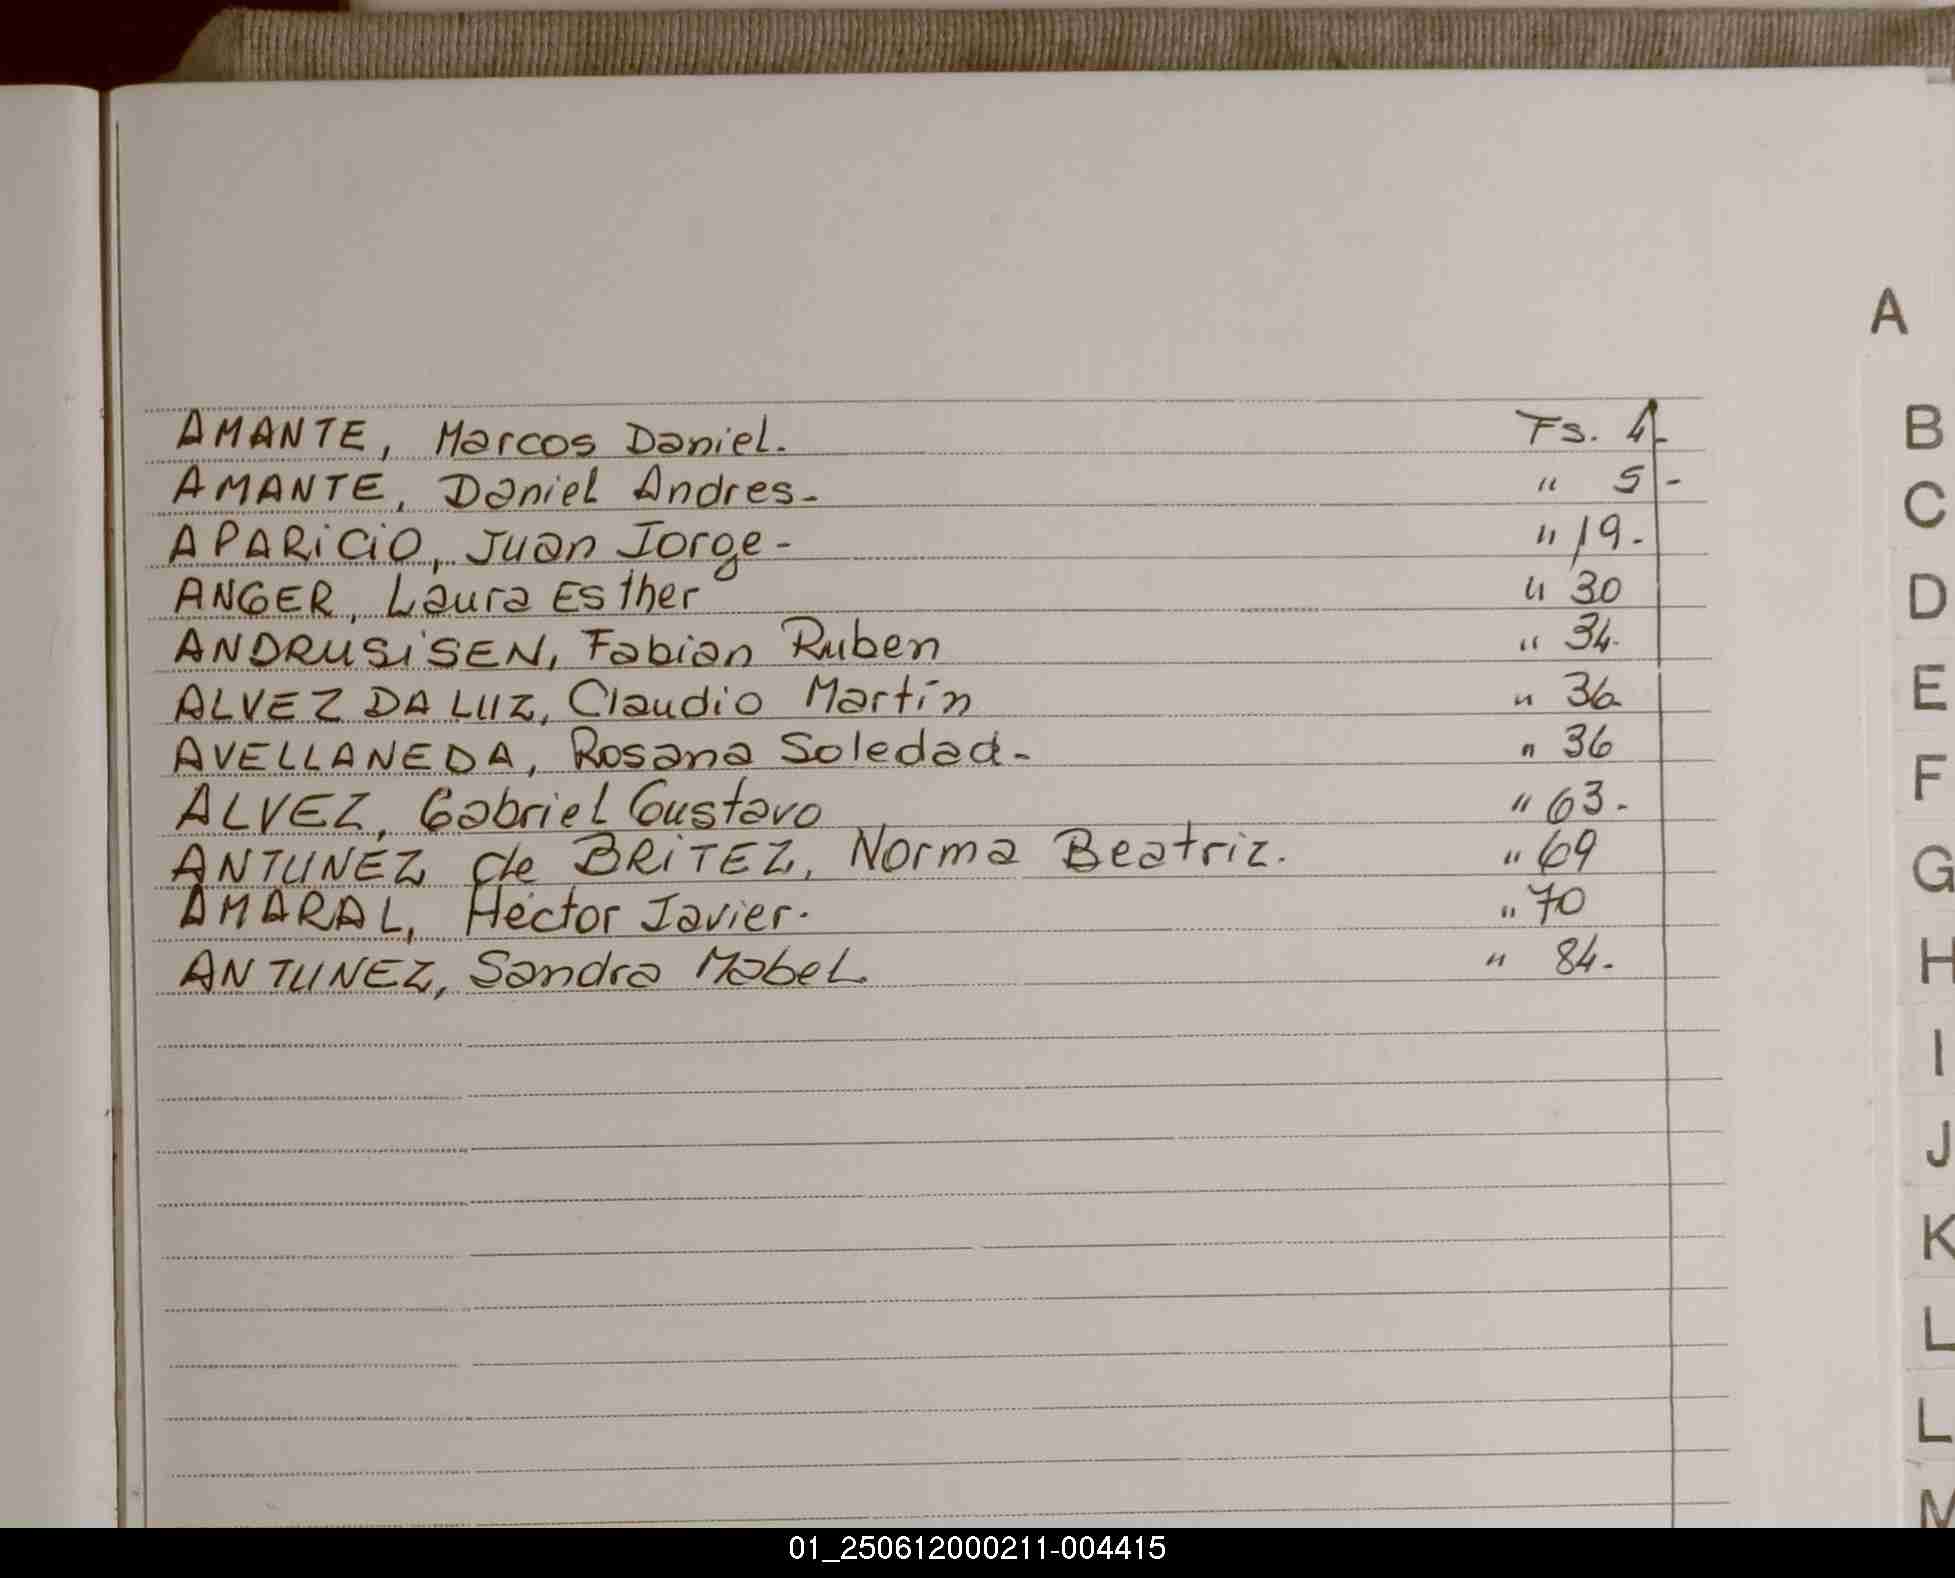 A
AMANTE, Marcos Daniel. Fs. 4-
AMANTE, Daniel Andres- " 5-
APARiCiO, Juan Jorge- " 19-
ANGER, Laura Esther " 30
ANDRUSiSEN, Fabian Ruben " 34.
ALVEZ DA LUZ, Claudio Martín " 36
AVELLANEDA, Rosana Soledad- " 36
ALVEZ, Gabriel Gustavo " 63-
ANTUNEZ de BRiTEZ, Norma Beatriz. " 69
AMARAL, Héctor Javier. " 70
ANTUNEZ, Sandra Mabel " 84-
B
C
D
E
F
G
H
I
J
K
L
L
M
01_250612000211-004415